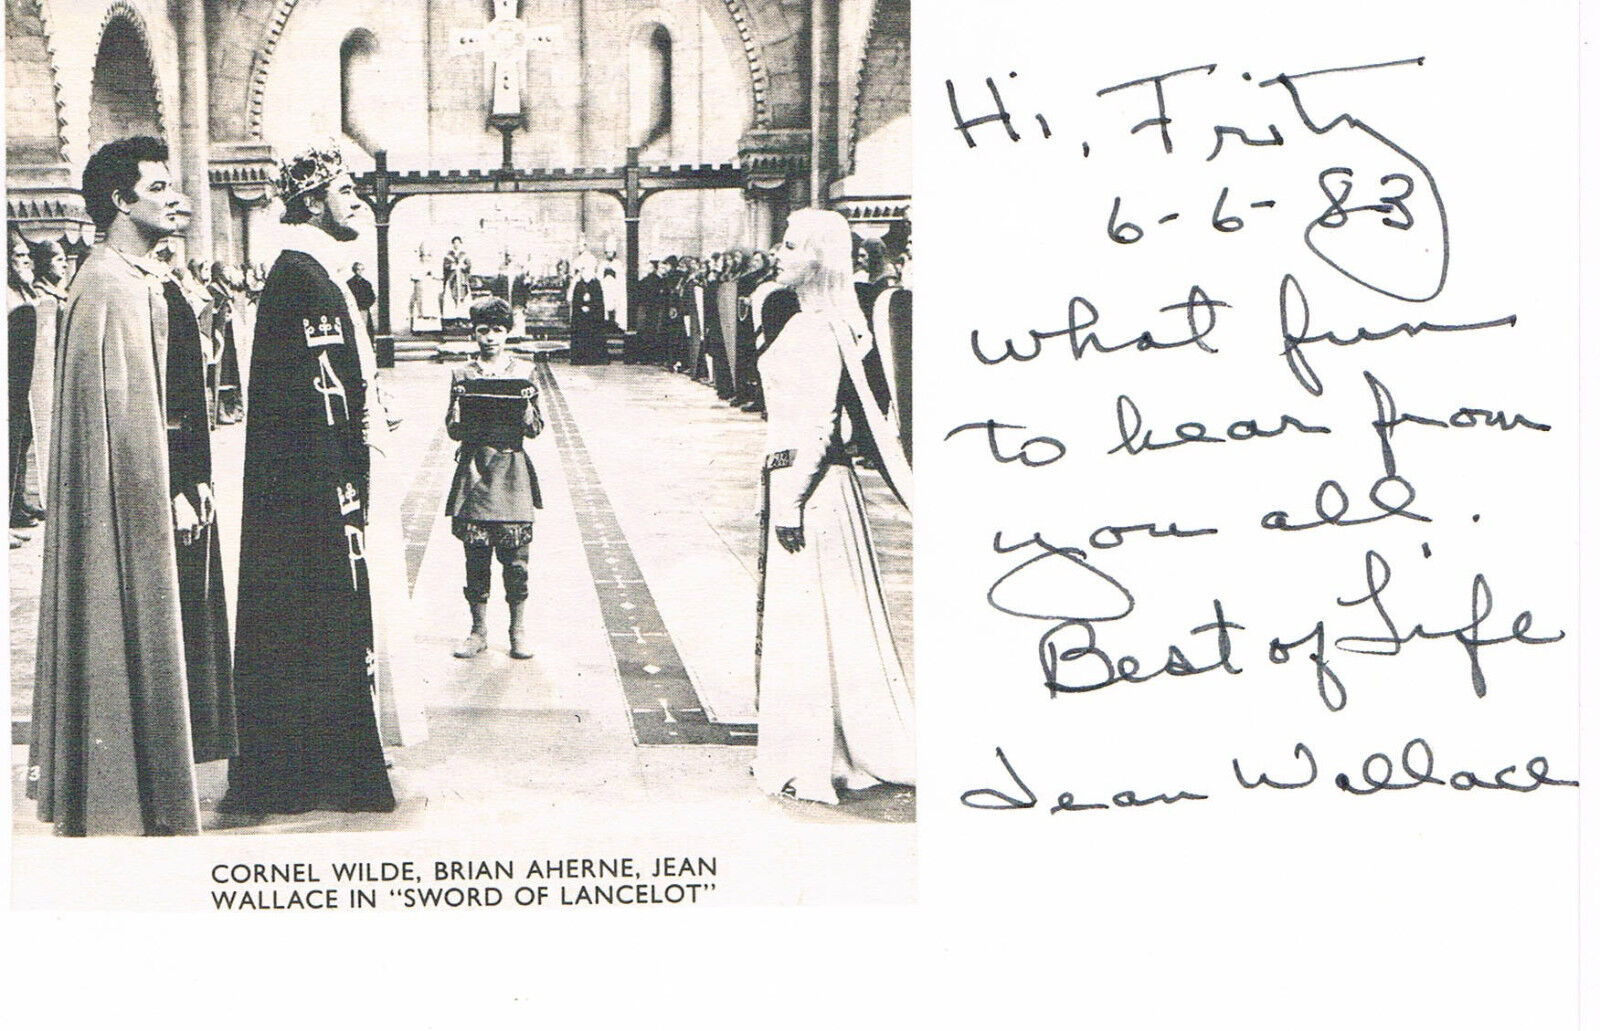 CORNEL WILDE, BRIAN AHERNE, JEAN
WALLACE IN "SWORD OF LANCELOT"
Hi, Fritz
6-6-83
What fun
to hear from
you all.
Best of Life
Jean Wallace